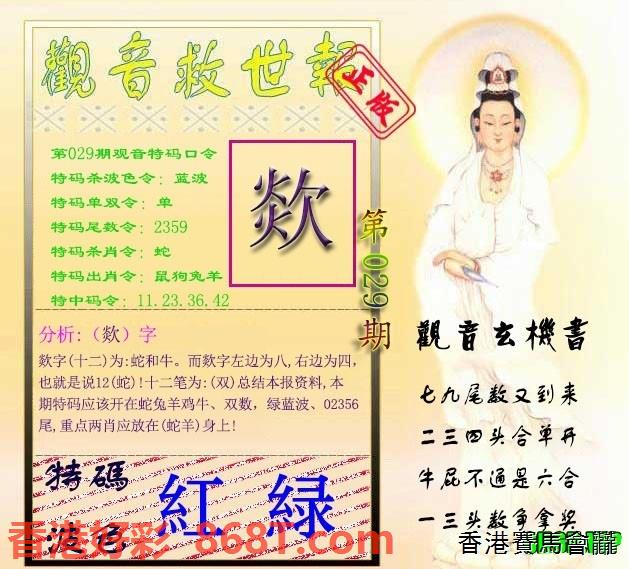 觀音救世報
正版
第029期观音特码口令
特码杀波色令：蓝波
特码单双令：单
特码尾数令：2359
特码杀肖令：蛇
特码出肖令：鼠狗兔羊
特中码令：11.23.36.42
欻
第029期
分析：（欻）字
欻字(十二)为:蛇和牛。而欻字左边为八,右边为四,
也就是说12(蛇)!十二笔为:(双)总结本报资料,本
期特码应该开在蛇兔羊鸡牛、双数，绿蓝波、02356
尾,重点两肖应放在(蛇羊)身上!
特碼
波色
紅 绿
觀音玄機書
七九尾数又到来
二三四头合单开
牛屁不通是六合
一三头数争拿奖
香港好彩 868T.com
香港賽馬會